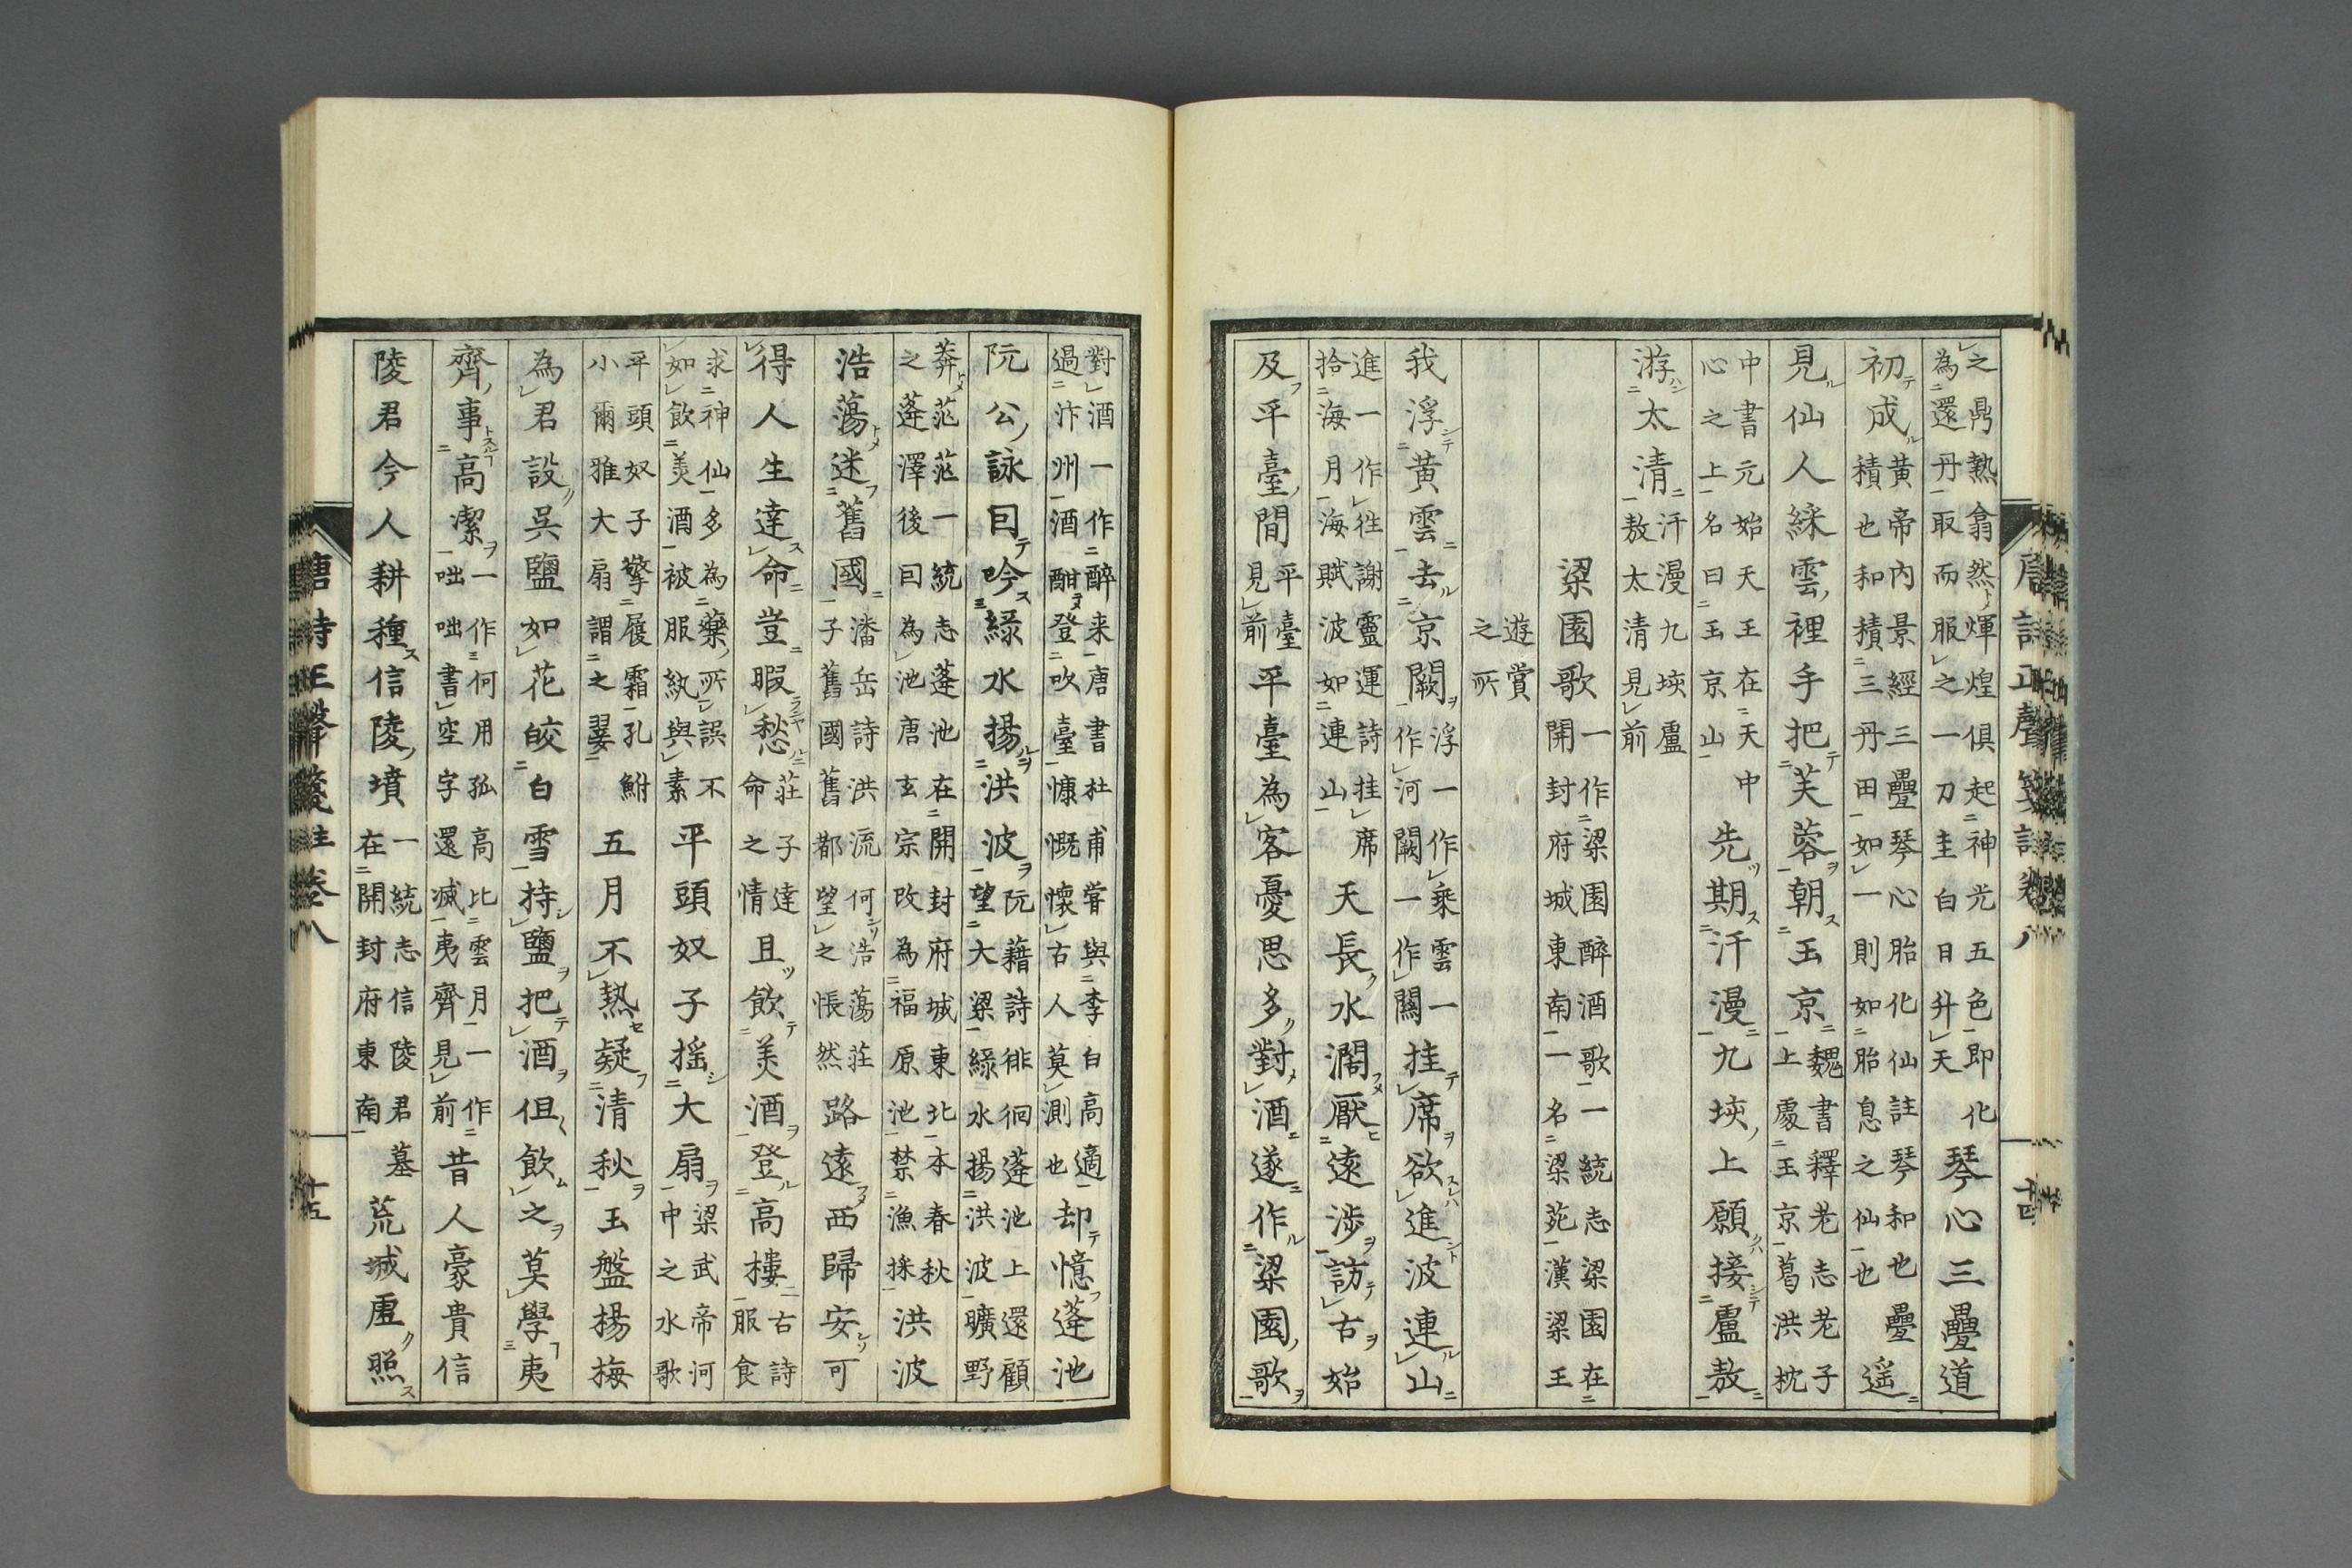 唐詩正聲箋註卷八　十四
之鼎熱翕然煇煌俱起神光五色即化
為還丹取而服之一刀圭白日升天
琴心三疊道
初成
黃帝內景經三疊琴心胎化仙註琴和也疊
積也和積三丹田如一則如胎息之仙也
遥
見仙人綵雲裡手把芙蓉朝玉京
魏書釋老志老子
上處玉京葛洪枕
中書元始天王在天中
心之上名曰玉京山
先期汗漫九垓上願接盧敖
游太清
汗漫九垓盧
敖太清見前
梁園歌
一作梁園醉酒歌一統志梁園在
開封府城東南一名梁苑漢梁王
遊賞
之所
我浮黃雲去京闕
浮一作乘雲一
作河闕一作關
挂席欲進波連山
進一作徃謝靈運詩挂席
拾海月海賦波如連山
天長水濶厭遠涉訪古始
及平臺間
平臺
見前
平臺為客憂思多對酒遂作梁園歌
對酒一作醉来唐書杜甫甞與李白高適
過汴州酒酣登吹臺慷慨懷古人莫測也
却憶蓬池
阮公詠曰吟綠水揚洪波
阮藉詩徘徊蓬池上還顧
望大梁綠水揚洪波曠野
莽茫茫一統志蓬池在開封府城東北本春秋
之蓬澤後曰為池唐玄宗改為福原池禁漁採
洪波
浩蕩迷舊國
潘岳詩洪流何浩蕩莊
子舊國舊都望之悵然
路遠西歸安可
得人生達命豈暇愁
莊子達
命之情
且飲美酒登高樓
古詩
服食
求神仙多為藥所誤不
如飲美酒被服紈與素
平頭奴子搖大扇
梁武帝河
中之水歌
平頭奴子擎履霜孔鮒
小爾雅大扇謂之翣
五月不熱疑清秋玉盤揚梅
為君設吳鹽如花皎白雪持鹽把酒但飲之莫學夷
齊事高潔
一作何用孤高比雲月一作
咄咄書空字還滅夷齊見前
昔人豪貴信
陵君今人耕種信陵墳
一統志信陵君墓
在開封府東南
荒城虛照
唐詩正聲箋註卷八　十五